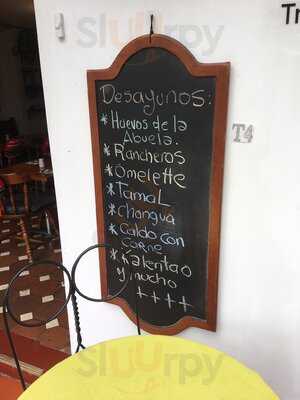 Desayunos:
* Huevos de la
Abuela.
* Rancheros
* Omelette
* Tamal
* Changua
* Caldo con
Carne
* Kalentao
y mucho
++++
T4
Tr
Sluurrpy
Sluurrpy